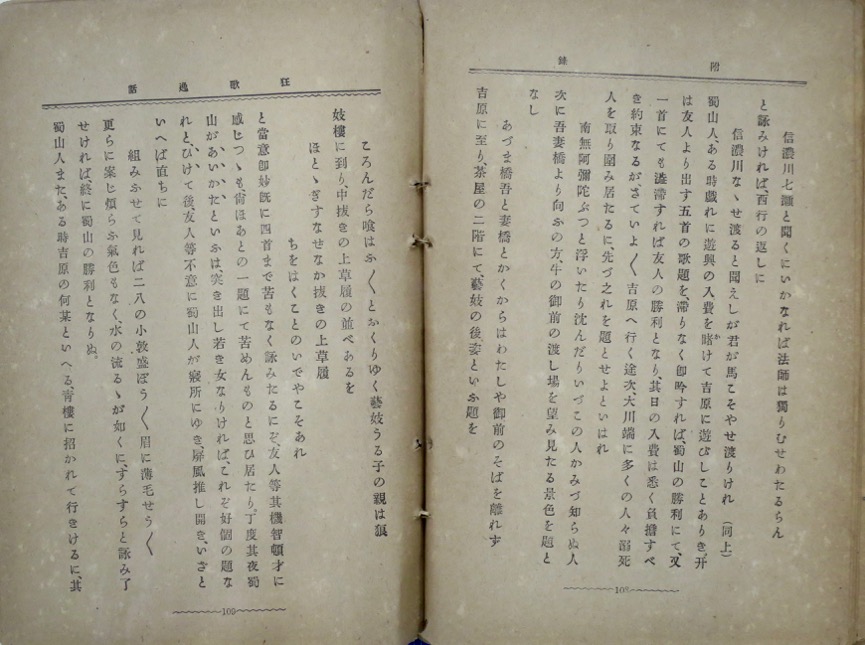 附錄
信濃川七瀨と聞くにいかなれば法師は獨りむせわたるらん
と詠みければ、西行の返しに
信濃川なゝせ渡ると聞えしが君が馬こそやせ渡りけれ (同上)
蜀山人、ある時戲れに遊興の入費を賭けて吉原に遊びしことありき、幵
は友人より出す五首の歌題を、滯りなく卽吟すれば、蜀山の勝利にて、又
一首にても澁滯すれば友人の勝利となり、其日の入費は悉く負擔すべ
き約束なるが、さていよ〳〵吉原へ行く途次、大川端に多くの人々溺死
人を取り圍み居たるに、先づ之れを題とせよといはれ
南無阿彌陀ぶつと浮いたり沈んだりいづこの人かみづ知らぬ人
次に吾妻橋より向ふの方、牛の御前の渡し場を望み見たる景色を題と
なし
あづま橋吾と妻橋とかくからはわたしや御前のそばを離れず
吉原に至り、茶屋の二階にて藝妓の後姿といふ題を
108
狂歌逸話
ころんだら喰はふ〳〵とおくりゆく藝妓うる子の親は狼
妓樓に到り、中拔きの上草履の並べあるを
ほとゝぎすなせなか拔きの上草履
ちをはくことのいでやこそあれ
と當意卽妙旣に四首まで苦もなく詠みたるにぞ、友人等其機智頓才に
感じつゝも、尙ほあとの一題にて苦めんものと思ひ居たり、丁度其夜蜀
山が、あいかたといふは、突き出し若き女なりければ、これぞ好個の題な
れと、ひけて後、友人等不意に蜀山人が寢所にゆき、屛風推し開き、いざと
いへば直ちに
組みふせて見れば二八の小敦盛ぼう〳〵眉に薄毛せう〳〵
更らに案じ煩らふ氣色もなく、水の流るゝが如くに、すらすらと詠み了
せければ、終に蜀山の勝利となりぬ。
蜀山人また、ある時吉原の何某といへる、靑樓に招かれて行きけるに、其
109